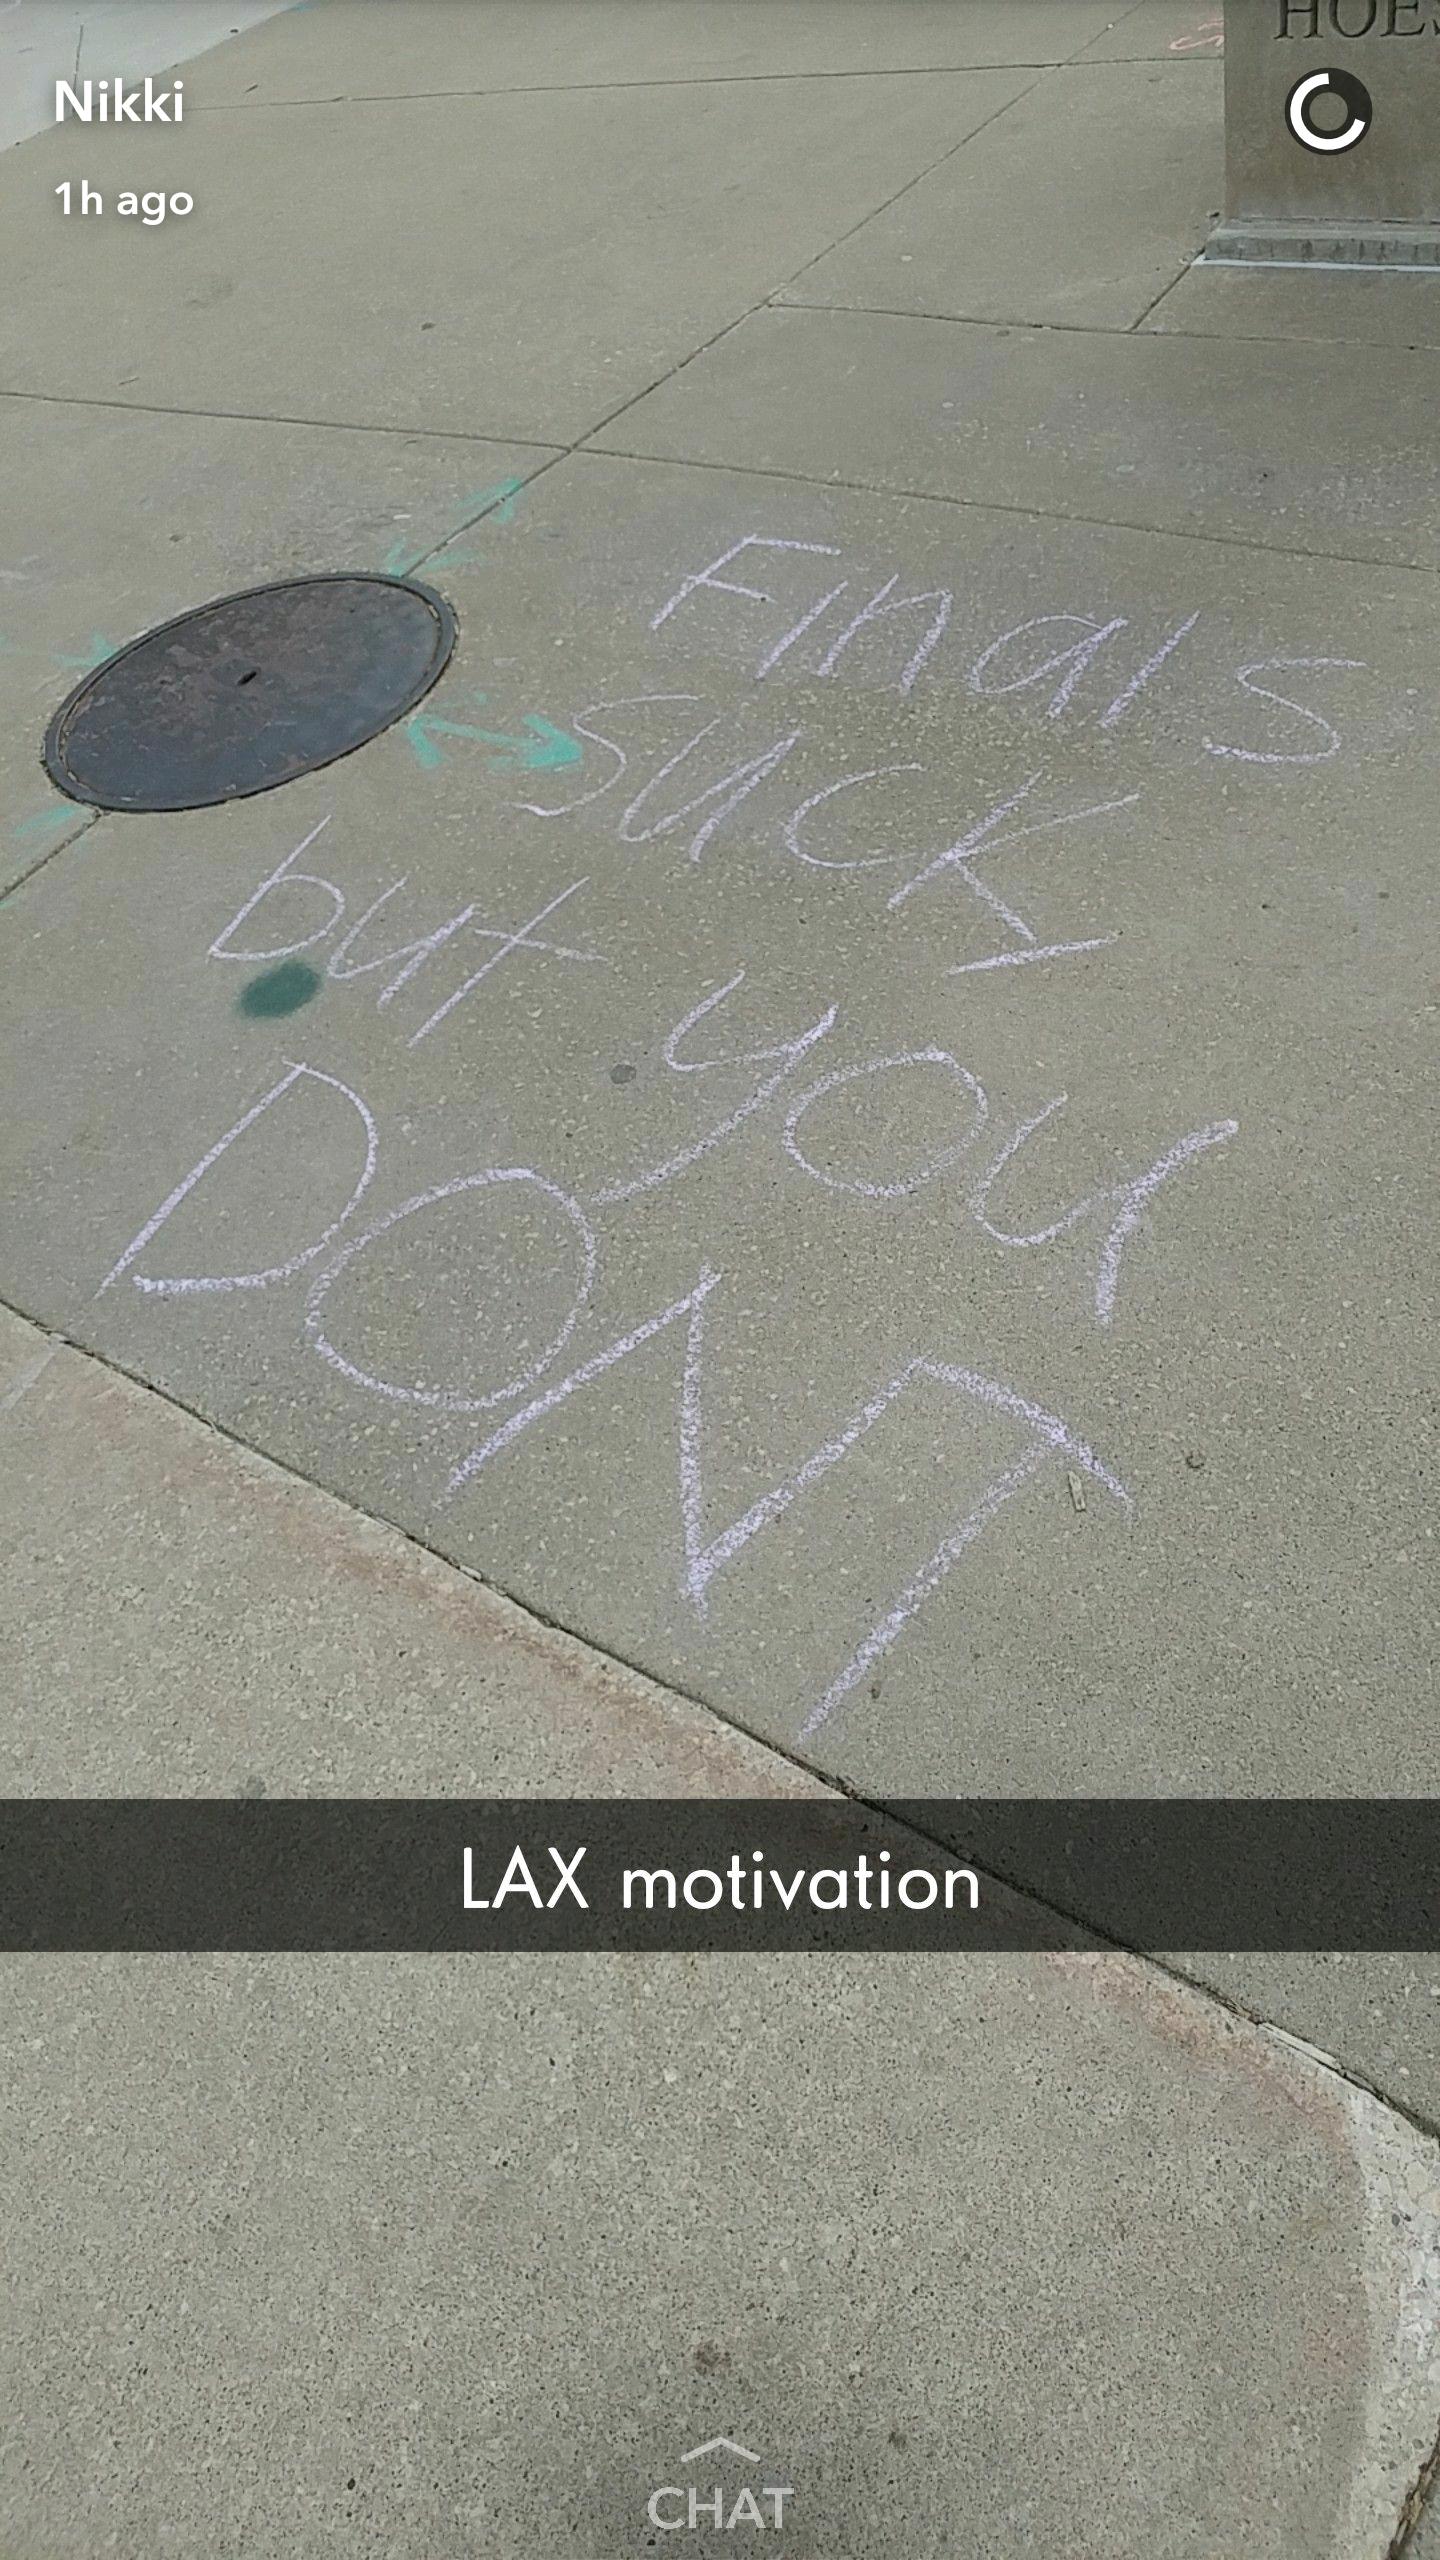 HOES
Nikki
1h ago
Finals
suck
but you
DONT
LAX motivation
CHAT